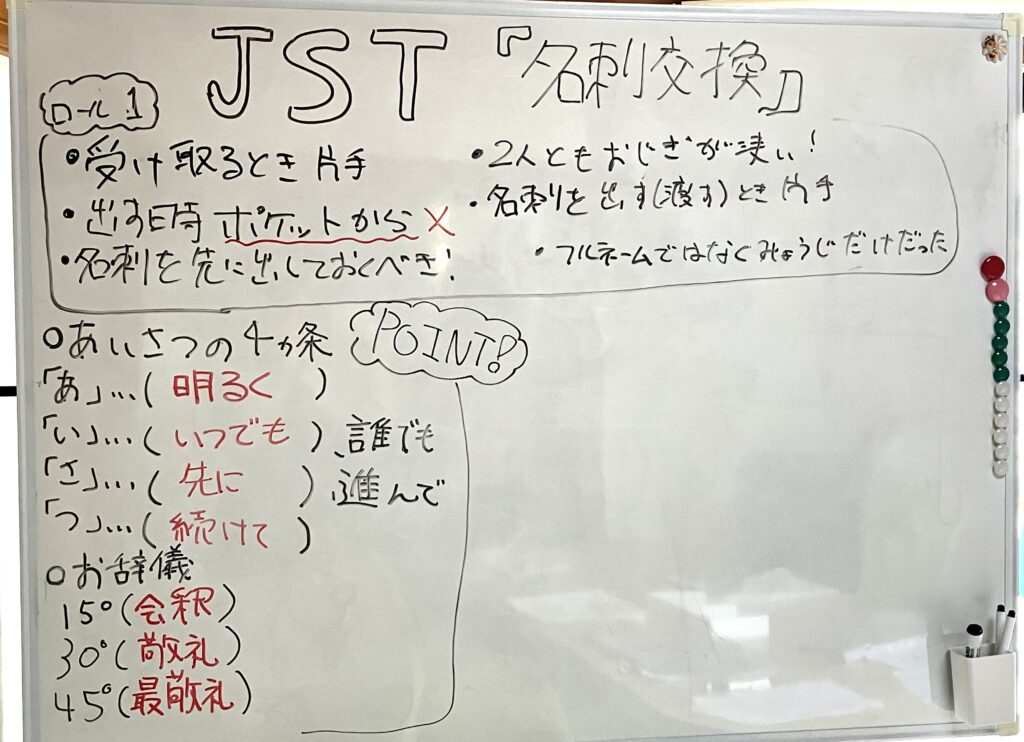 JST『名刺交換』
ロール1
・受け取るとき片手
・出す時ポケットから×
・名刺を先に出しておくべき!
・2人ともおじぎが浅い!
・名刺を出す(渡す)とき片手
・フルネームではなくみょうじだけだった
○あいさつの4ヵ条
POINT!
「あ」…(明るく)
「い」…(いつでも)、誰でも
「さ」…(先に)、進んで
「つ」…(続けて)
○お辞儀
15°(会釈)
30°(敬礼)
45°(最敬礼)